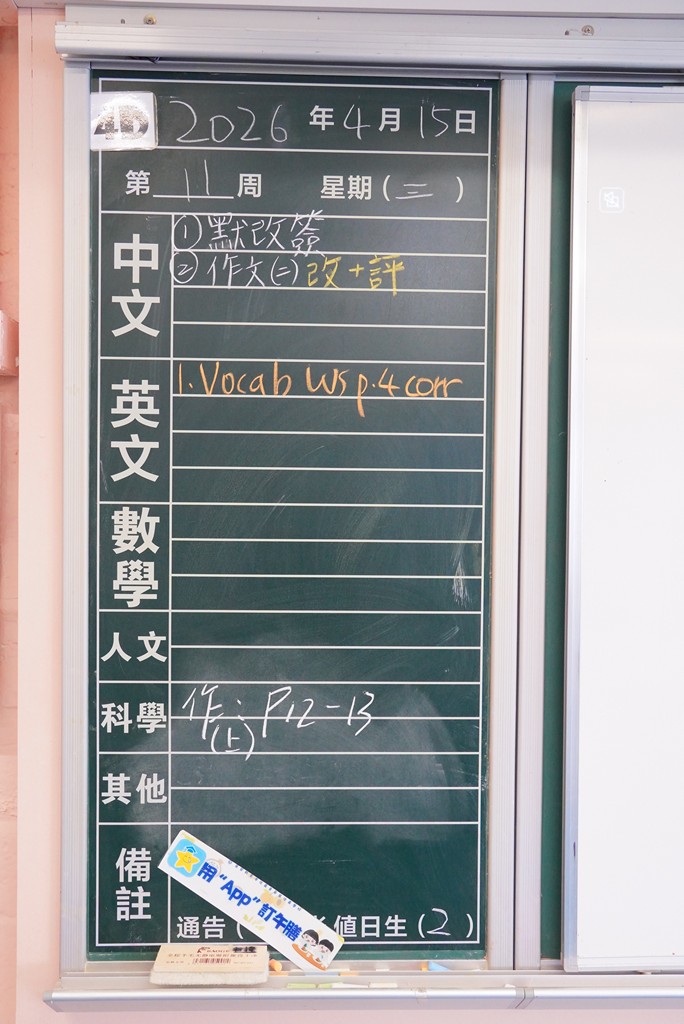 4D 2026 年 4 月 15 日
第 11 周 星期 (三)
中文
① 默改簽
② 作文(二) 改+評
英文
1. Vocab WS p.4 corr
數學
人文
科學
作: P.12-13
(上)
其他
備註
用“App”訂午膳
通告 ( 值日生 (2)